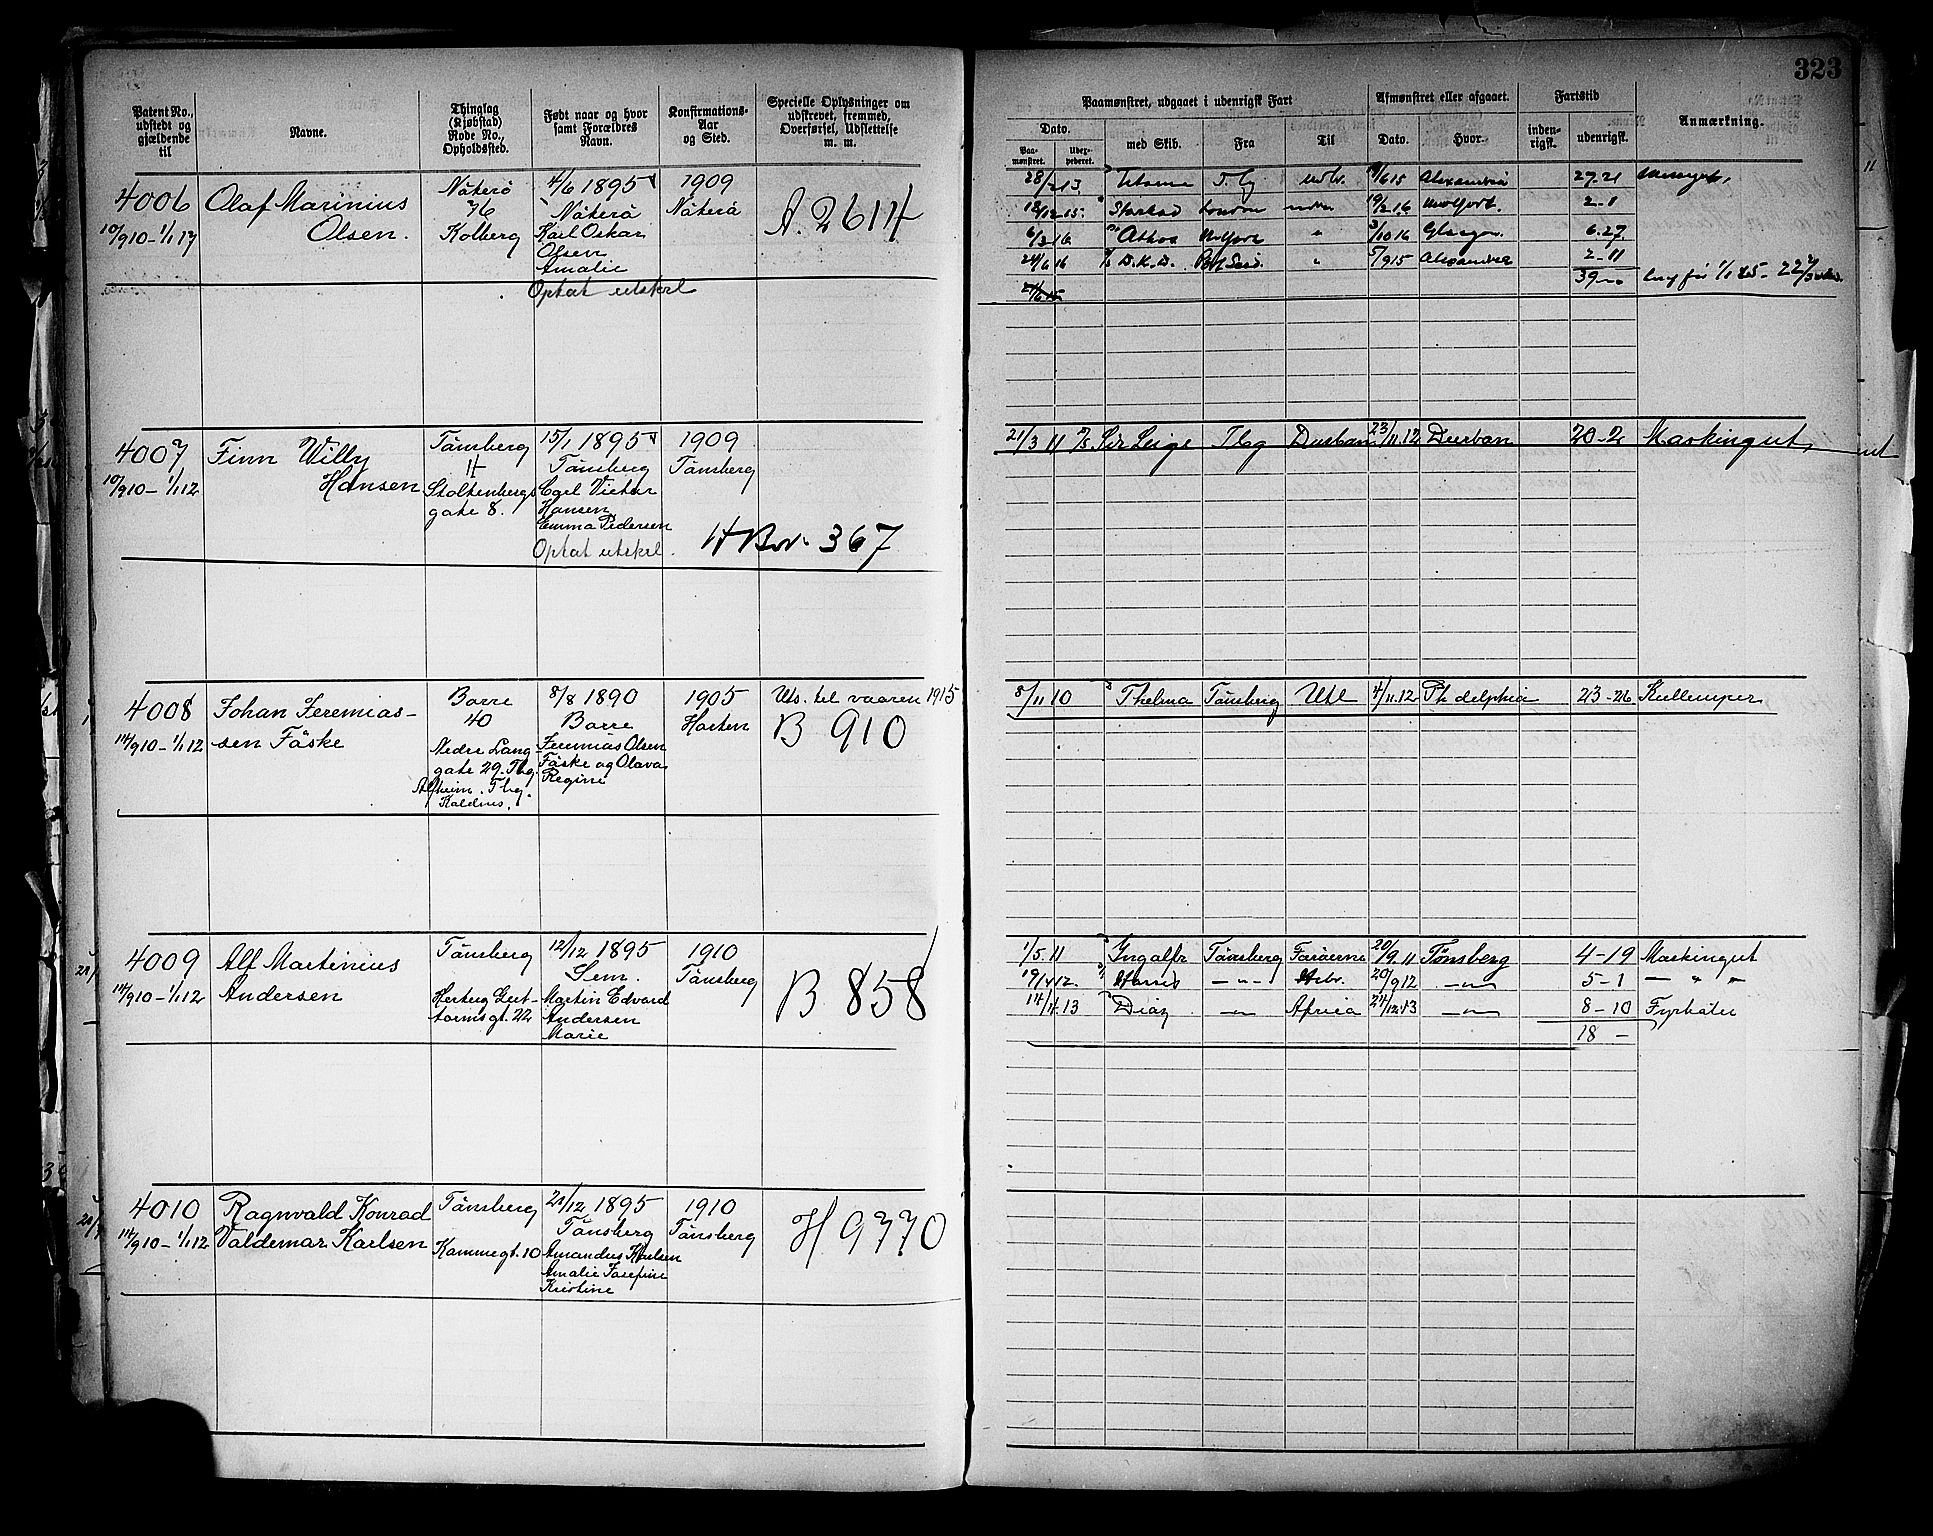 323
Patent No., udstedt og gjældende til
Navne.
Thinglag (Kjøbstad) Rode No., Opholdssted.
Født naar og hvor samt Forældres Navn.
Konfirmations-Aar og Sted.
Specielle Oplysninger om udskrevet, fremmed, Overførsel, Udslettelse m. m.
Paamønstret, udgaaet i udenrigsk Fart
Afmønstret eller afgaaet.
Fartstid
Anmærkning.
Dato.
Paa-mønstret.
Uder-pederet.
med Skib.
Fra
Til
Dato.
Hvor.
inden-rigsk.
udenrigsk.
4006
10/9 10 - 1/1 17
Olaf Marinius
Olsen.
Nøterø
76
Kolberg
4/6 1895
Nøterø
Karl Oskar
Olsen
Amalie
Optat utskrl
1909
Nøterø
A. 2614
28/2 13 T.bg udlv. 6 15 Alexandria 27-21
18/12 15 Starstad London 19/2 16 2-1
6/3 16 Athos 3/10 16 Glasgow 6.27
24/6 16 D.K.D. 5/9 15 Alexandria 2-11
39-
4007
10/9 10 - 1/1 12
Finn Willy
Hansen
Tønsberg
4
Stoltenbergs
gate 8.
15/1 1895
Tønsberg
Carl Victor
Hansen
Emma Pedersen
Optat utskrl.
1909
Tønsberg
H Bov. 367
21/3 11 Tbg Durban 23/11.12 Durban 20-2 Maskingut
4008
14/9 10 - 1/1 12
Johan Jeremias-
sen Føske
Borre
40
Nedre Lang-
gate 29. Tbg.
Alfheim. Tbg.
Kaldnes.
8/8 1890
Borre
Jeremias Olsen
Føske og Olava
Regine
1905
Horten
Uts. til vaaren 1915
B 910
8/11 10 Thelma Tønsberg Utl 4/11.12 Ph delphia 23-26 Kullemper
4009
14/9 10 - 1/1 12
Alf Martinius
Andersen
Tønsberg
Hertug Gut-
tormsgt. 22
12/12 1895
Sem.
Martin Edvard
Andersen
Marie
1910
Tønsberg
B 858
1/5 11 Ingolf Tønsberg Færøerne 20/9.11 Tønsberg 4-19 Maskingut
19/4 12. -"- 20/9 12 -"- 5-1 - " -
14/4.13 Diaz -"- Africa 24/12.13 -"- 8-10 Fyrbøter
18 -
4010
14/9 10 - 1/1 12
Ragnvald Konrad
Valdemar Karlsen
Tønsberg
Kammegt. 10
21/12 1895
Tønsberg
Amandus Karlsen
Amalie Josefine
Kristine
1910
Tønsberg
H 9770